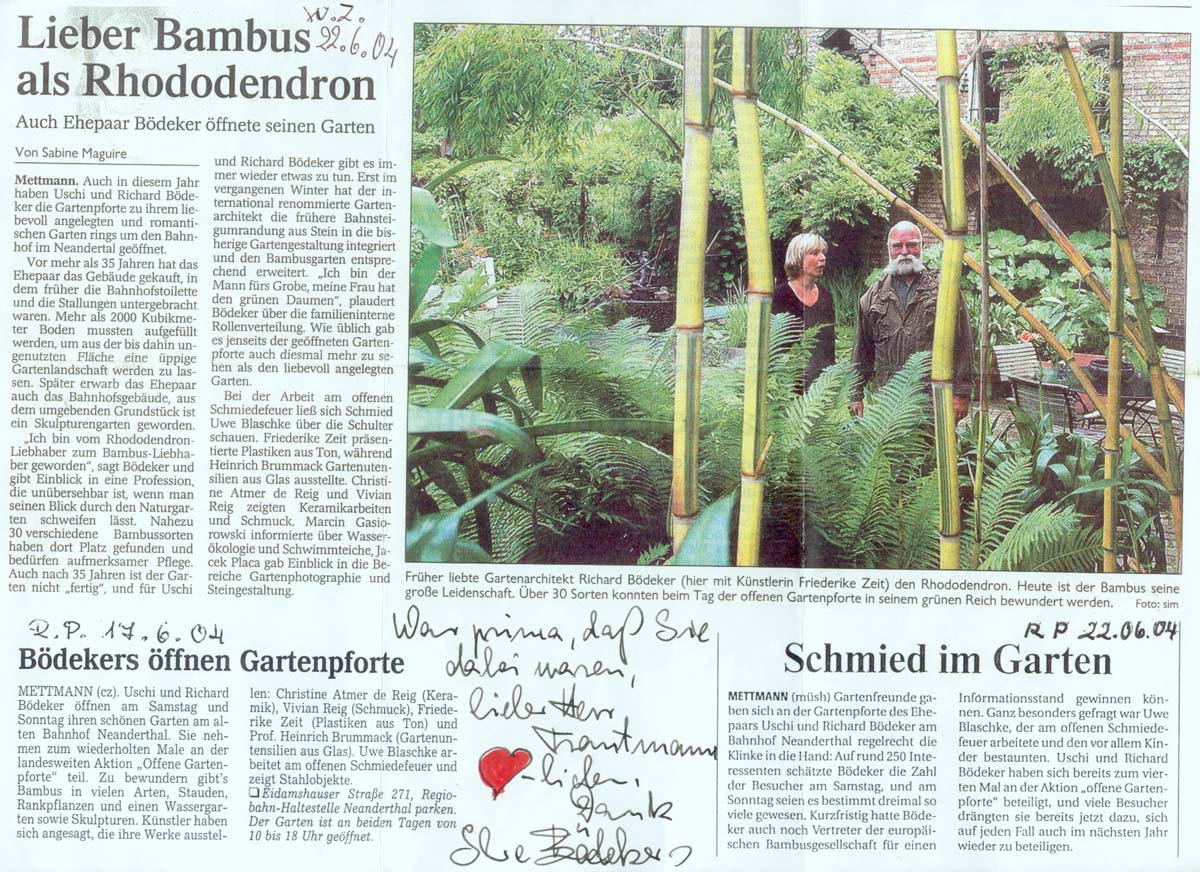 Lieber Bambus
als Rhododendron
W.Z.
22.6.04
Auch Ehepaar Bödeker öffnete seinen Garten
Von Sabine Maguire
Mettmann. Auch in diesem Jahr
haben Uschi und Richard Böde-
ker die Gartenpforte zu ihrem lie-
bevoll angelegten und romanti-
schen Garten rings um den Bahn-
hof im Neandertal geöffnet.
Vor mehr als 35 Jahren hat das
Ehepaar das Gebäude gekauft, in
dem früher die Bahnhofstoilette
und die Stallungen untergebracht
waren. Mehr als 2000 Kubikme-
ter Boden mussten aufgefüllt
werden, um aus der bis dahin un-
genutzten Fläche eine üppige
Gartenlandschaft werden zu las-
sen. Später erwarb das Ehepaar
auch das Bahnhofsgebäude, aus
dem umgebenden Grundstück ist
ein Skulpturengarten geworden.
„Ich bin vom Rhododendron-
Liebhaber zum Bambus-Liebha-
ber geworden“, sagt Bödeker und
gibt Einblick in eine Profession,
die unübersehbar ist, wenn man
seinen Blick durch den Naturgar-
ten schweifen lässt. Nahezu
30 verschiedene Bambussorten
haben dort Platz gefunden und
bedürfen aufmerksamer Pflege.
Auch nach 35 Jahren ist der Gar-
ten nicht „fertig“, und für Uschi
und Richard Bödeker gibt es im-
mer wieder etwas zu tun. Erst im
vergangenen Winter hat der in-
ternational renommierte Garten-
architekt die frühere Bahnstei-
gumrandung aus Stein in die bis-
herige Gartengestaltung integriert
und den Bambusgarten entspre-
chend erweitert. „Ich bin der
Mann fürs Grobe, meine Frau hat
den grünen Daumen“, plaudert
Bödeker über die familieninterne
Rollenverteilung. Wie üblich gab
es jenseits der geöffneten Gart-
pforte auch diesmal mehr zu se-
hen als den liebevoll angelegten
Garten.
Bei der Arbeit am offenen
Schmiedefeuer ließ sich Schmied
Uwe Blaschke über die Schulter
schauen. Friederike Zeit präsen-
tierte Plastiken aus Ton, während
Heinrich Brummack Gartenuten-
silien aus Glas ausstellte. Christi-
ne Atmer de Reig und Vivian
Reig zeigten Keramikarbeiten
und Schmuck. Marcin Gasio-
rowski informierte über Wasser-
ökologie und Schwimmteiche, Ja-
cek Placa gab Einblick in die Be-
reiche Gartenphotographie und
Steingestaltung.
Früher liebte Gartenarchitekt Richard Bödeker (hier mit Künstlerin Friederike Zeit) den Rhododendron. Heute ist der Bambus seine
große Leidenschaft. Über 30 Sorten konnten beim Tag der offenen Gartenpforte in seinem grünen Reich bewundert werden. Foto: sim
R.P. 17.6.04
Bödekers öffnen Gartenpforte
METTMANN (cz). Uschi und Richard
Bödeker öffnen am Samstag und
Sonntag ihren schönen Garten am al-
ten Bahnhof Neanderthal. Sie neh-
men zum wiederholten Male an der
landesweiten Aktion „Offene Garten-
pforte“ teil. Zu bewundern gibt's
Bambus in vielen Arten, Stauden,
Rankpflanzen und einen Wassergar-
ten sowie Skulpturen. Künstler haben
sich angesagt, die ihre Werke ausstel-
len: Christine Atmer de Reig (Kera-
mik), Vivian Reig (Schmuck), Friede-
rike Zeit (Plastiken aus Ton) und
Prof. Heinrich Brummack (Gartenun-
tensilien aus Glas). Uwe Blaschke ar-
beitet am offenen Schmiedefeuer und
zeigt Stahlobjekte.
❑ Eidamshauser Straße 271, Regio-
bahn-Haltestelle Neanderthal parken.
Der Garten ist an beiden Tagen von
10 bis 18 Uhr geöffnet.
War prima, daß Sie
dabei waren,
lieber Herr
Trautmann
– lieben,
Dank
Ihre Bödekers
RP 22.06.04
Schmied im Garten
METTMANN (müsh) Gartenfreunde ga-
ben sich an der Gartenpforte des Ehe-
paars Uschi und Richard Bödeker am
Bahnhof Neanderthal regelrecht die
Klinke in die Hand: Auf rund 250 Inte-
ressenten schätzte Bödeker die Zahl
der Besucher am Samstag, und am
Sonntag seien es bestimmt dreimal so
viele gewesen. Kurzfristig hatte Böde-
ker auch noch Vertreter der europäi-
schen Bambusgesellschaft für einen
Informationsstand gewinnen kön-
nen. Ganz besonders gefragt war Uwe
Blaschke, der am offenen Schmiede-
feuer arbeitete und den vor allem Kin-
der bestaunten. Uschi und Richard
Bödeker haben sich bereits zum vier-
ten Mal an der Aktion „offene Garten-
pforte“ beteiligt, und viele Besucher
drängten sie bereits jetzt dazu, sich
auf jeden Fall auch im nächsten Jahr
wieder zu beteiligen.